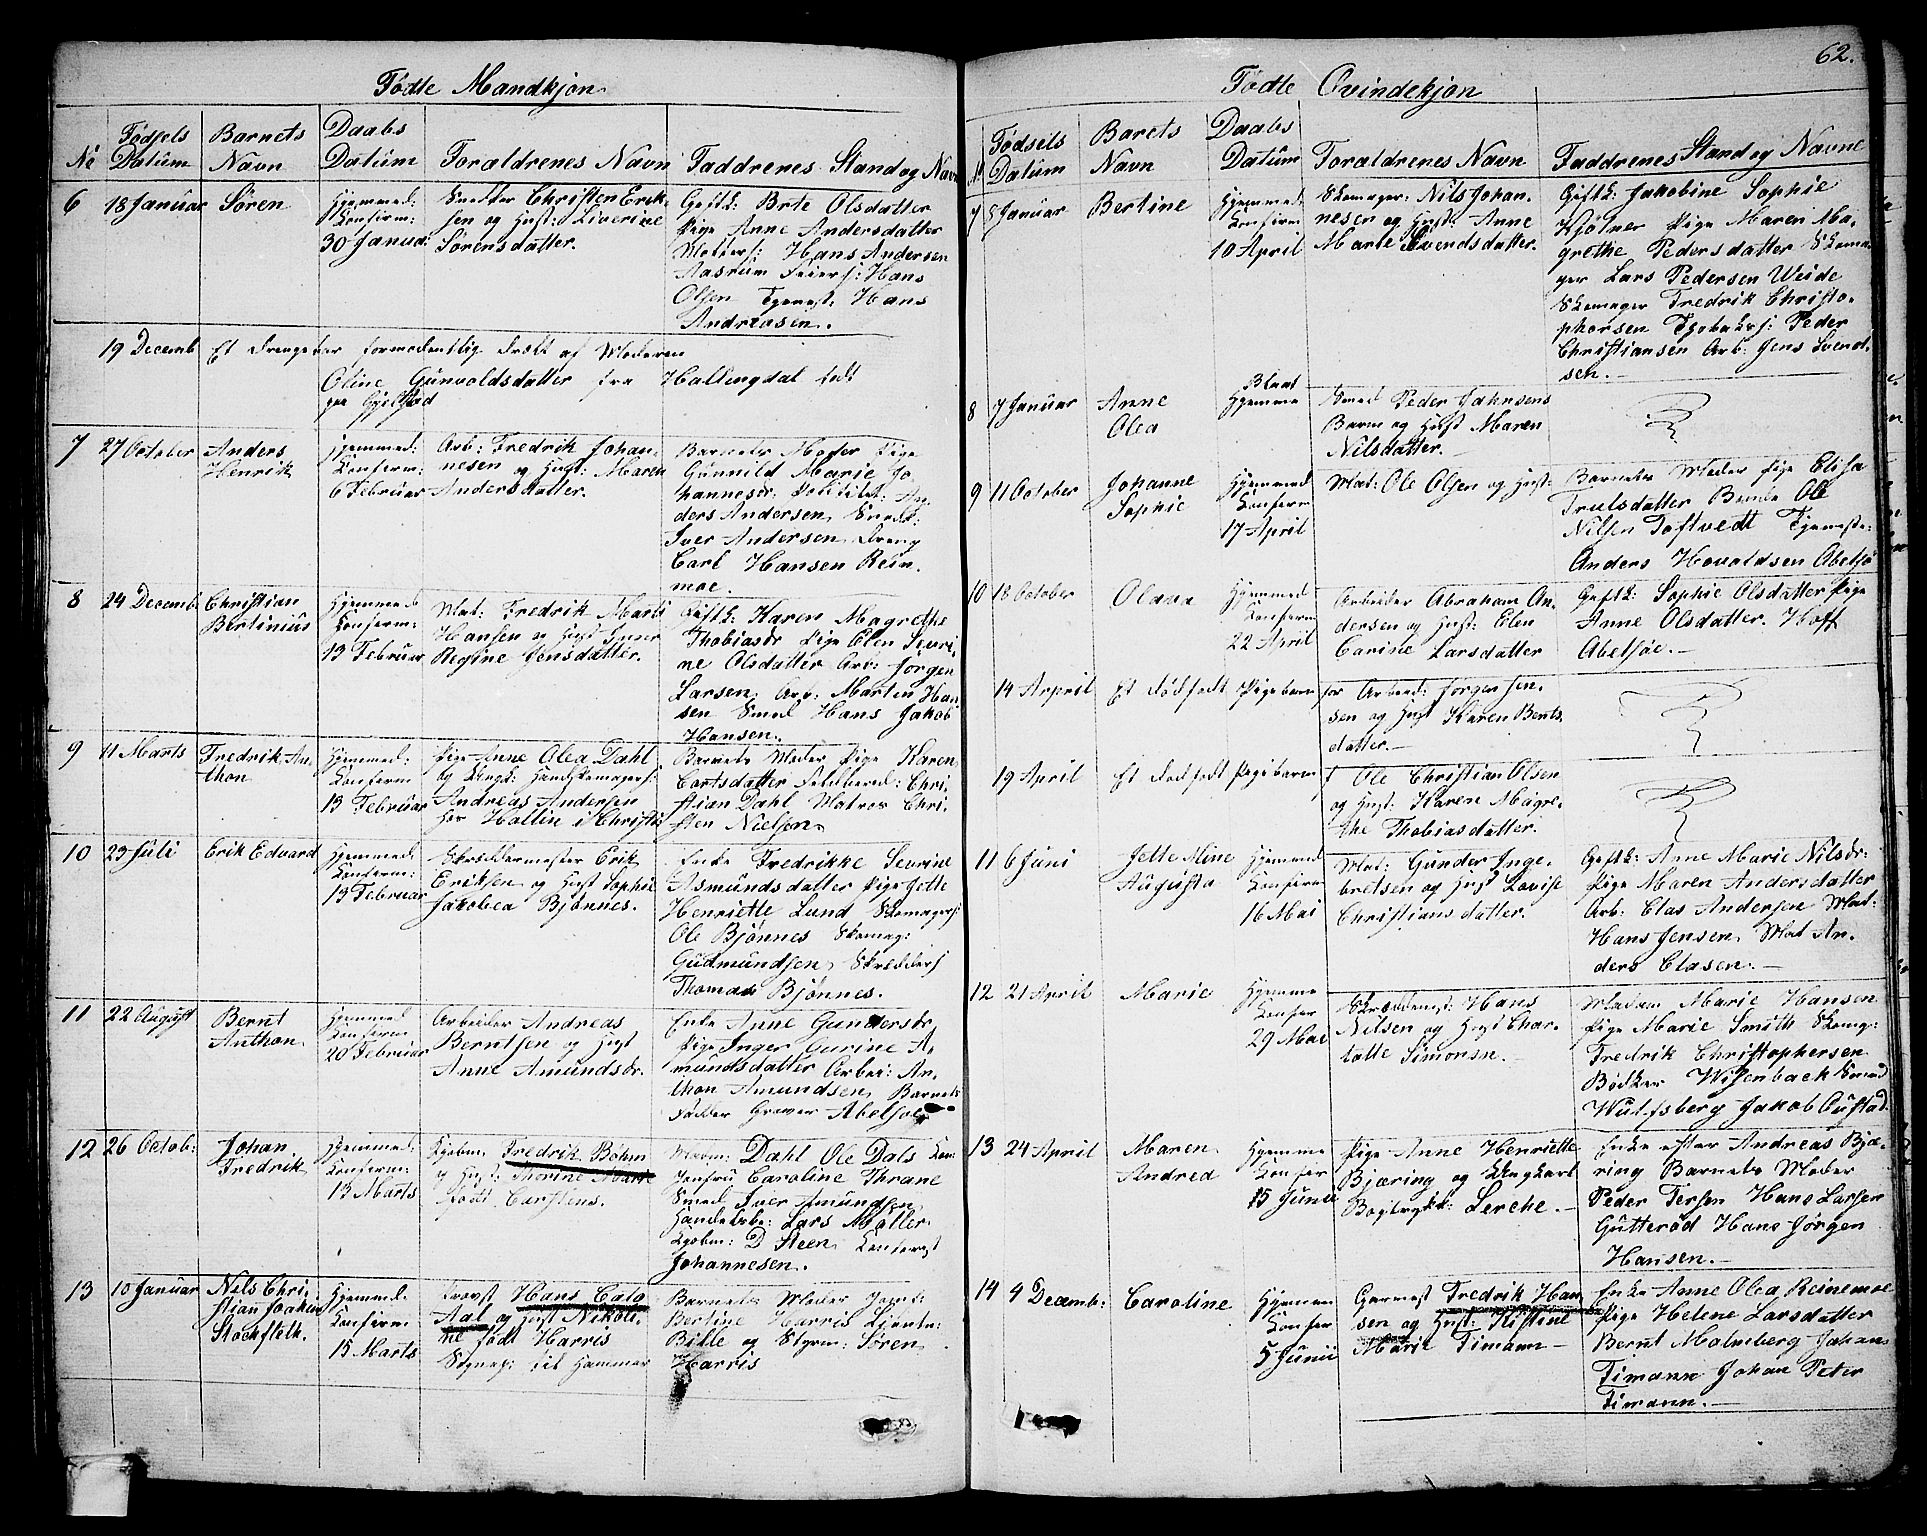 62.
Födte Mandkjön
No
Födsels Datum
Barnets Navn
Daabs Datum
Foraldrenes Navn
Faddrenes Stand og Navn
6 18 Januar Sören
Hjemmed:
Konfirm:
30 Januar
Snedker Christen Erik-
sen og Hust: Siverine
Sörensdatter.
Geftk: Brte Olsdatter
Pige Anne Andersdatter
Matrs: Hans Andersen
Aasrum Feiers: Hans
Olsen Tjenest: Hans
Andreasen.
19 Decemb Et Drengebar formodentlig dræbt af Moderen
Oline Gunvoldsdatter fra Hallingdal födt
paa Gjelstad
7 27 October Anders
Henrik
Hjemmed:
Konferm:
6 Februar
Arb: Fredrik Johan-
nesen og Hust: Maren
Andersdatter.
Barnets Moder Pige
Gunnild Marie Jo
hannesdr. Politibt: An
ders Andersen, Snedk:
Iver Andersen Dreng
Carl Hansen Reim
moe.
8 24 Decemb: Christian
Bertinius
Hjemmed
Konferm:
13 Februar
Mat: Fredrik Marti
Hansen og Hust Inger
Regine Jensdatter.
Giftk: Karen Magrethe
Thobiasdr Pige Elen Sevri-
ne Olsdatter Arb: Jörgen
Larsen, Arb: Martin Han-
sen Smed Hans Jakob
Hansen.
9 11 Marts Fredrik An-
thon
Hjemmed:
Konferm
13 Februar
Pige Anne Olea Dahl
og Ungk: Handskemagers:
Andreas Andersen
hos Hallin i Christi:
Barnets Moder Pige Karen
Carlsdatter Feldbered: Chri-
stian Dahl Matros Chri-
sten Nielsen
10 23 Juli Erik Edvard
Hjemmed:
Konferm:
13 Februar
Skreddermester Erik
Eriksen og Hust Sophie
Jakobea Bjönnes.
Enke Fredrikke Sevrine
Asmundsdatter Pige Jette
Henriette Lund Skomagers:
Ole Bjönnes Skomag:
Gudmundsen, Skredders
Thomas Bjönnes.
11 22 August Bernt
Anthon
Hjemmed
Konferm
20 Februar
Arbeider Andreas
Berntsen og Hust
Anne Amundsdr.
Enke Anne Gundersdr.
Pige Inger Gurine A-
mundsdatter Arbei: An-
thon Amundsen, Barnets
Fadder Graver Abelsöe
12 26 Octob: Johan
Fredrik
Hjemmed:
Konferm:
13 Marts
Kjöbm: Fredrik Böhm
og Hust: Thorine Marie
födt Carstens.
Madm: Dahl Ole Dals Kon:
Jomfru Caroline Thrane
Smed Iver Amundsen
Handelsbe: Lars Möller
Kjöbm: D Steen,
Johannesen.
13 10 Januar Nils Chri-
stian Joakim
Stockfleth.
Hjemmed:
Konferm
15 Marts
Provst Hans Cato
Aal og Hust Nikoli-
ne födt Harris
Sognep: til Hammer
Barnets Moder Jomf:
Bertine Harris Löjtn:
Bille og Styrm: Sören
Harris
Födte Qvindekjön
No
Födseils Datum
Barets Navn
Daabs Datum
Foraldrenes Navn
Faddrenes Stand og Navne
7 5 Januar Bertine
Hjemmed
Konferm:
10 April
Skomager: Nils Johan-
nesen og Hust: Anne
Marie Svendsdatter.
Geftk: Jakobine Sophie
Kjölner Pige Maren Ma-
grethe Pedersdatter Skoma-
ger Lars Pedersen Weide
Skomager Fredrik Christo-
phersen Tjobaks: Peder
Christiansen Arb: Jens Svend-
sen.
8 7 Januar Anne
Olea
Hjemme
Smed Peder Jahnsens
Barn og Hust Maren
Nilsdatter.
9 11 October Johanne
Sophie
Hjemmed
Konferm
17 April
Mat: Ole Olsen og Hust:
Barnets Moder Pige Elisa
Trulsdatter Bonde Ole
Nilsen Toftvedt Tjeneste:
Anders Hovaldsen Abelsö
10 18 October Olava
Hjemmed
Konferm
22 April
Arbeider Abraham An-
dersen og Hust: Elen
Carine Larsdatter
Geftk: Sophie Olsdatter Pige
Anne Olsdatter. Hoff
Abelsöe.
14 Arpril Et Dödfodt Pigebarn for Arbeid: Jörgen Jen-
sen og Hust Karen Bents-
datter.
19 April Et Dödfodt Pigebarn f Ole Christian Olsen
og Hust: Karen Magre-
the Thobiasdatter.
11 6 Juni Jette Mine
Augusta
Hjemmed
Konferm
16 Mai
Mat: Gunder Inge-
bretsen og Hust Lovise
Christiansdatter.
Geftk: Anne Marie Nilsdr.
Pige Maren Andersdatter
Arb: Clas Andersen Mat:
Hans Jensen, Mat An-
ders Clasen.
12 21 April Marie
Hjemme
Konfer
29 Mai
Skreddemst: Hans
Nilsen og Hust Char-
lotte Simonsn.
Madam Marie Hansen
Pige Marie Smith Skomg:
Fredrik Christophersen
Bödker Wisenback Smed
Wulfsberg Jakob Gustad.
13 24 April Maren
Andrea
Hjemme
Konfer
15 Junii
Pige Anne Henriette
Bjæring og Ungkarl
Bogtrykk: Lerche.
Enke efter Andreas Bjæ-
ring Barnets Moder
Peder Tersen Hans Larsen
Gutteröd Hans Jörgen
Hansen.
14 4 Decemb: Caroline
Hjemme
Konfer
5 Junii
Garmest Fredrik Han
sen og Hust: Kistine
Marie Timann
Enke Anne Olea Reinemoe
Pige Helene Larsdatter
Bernt Malmberg Johan
Timann Johan Peter
Timann.